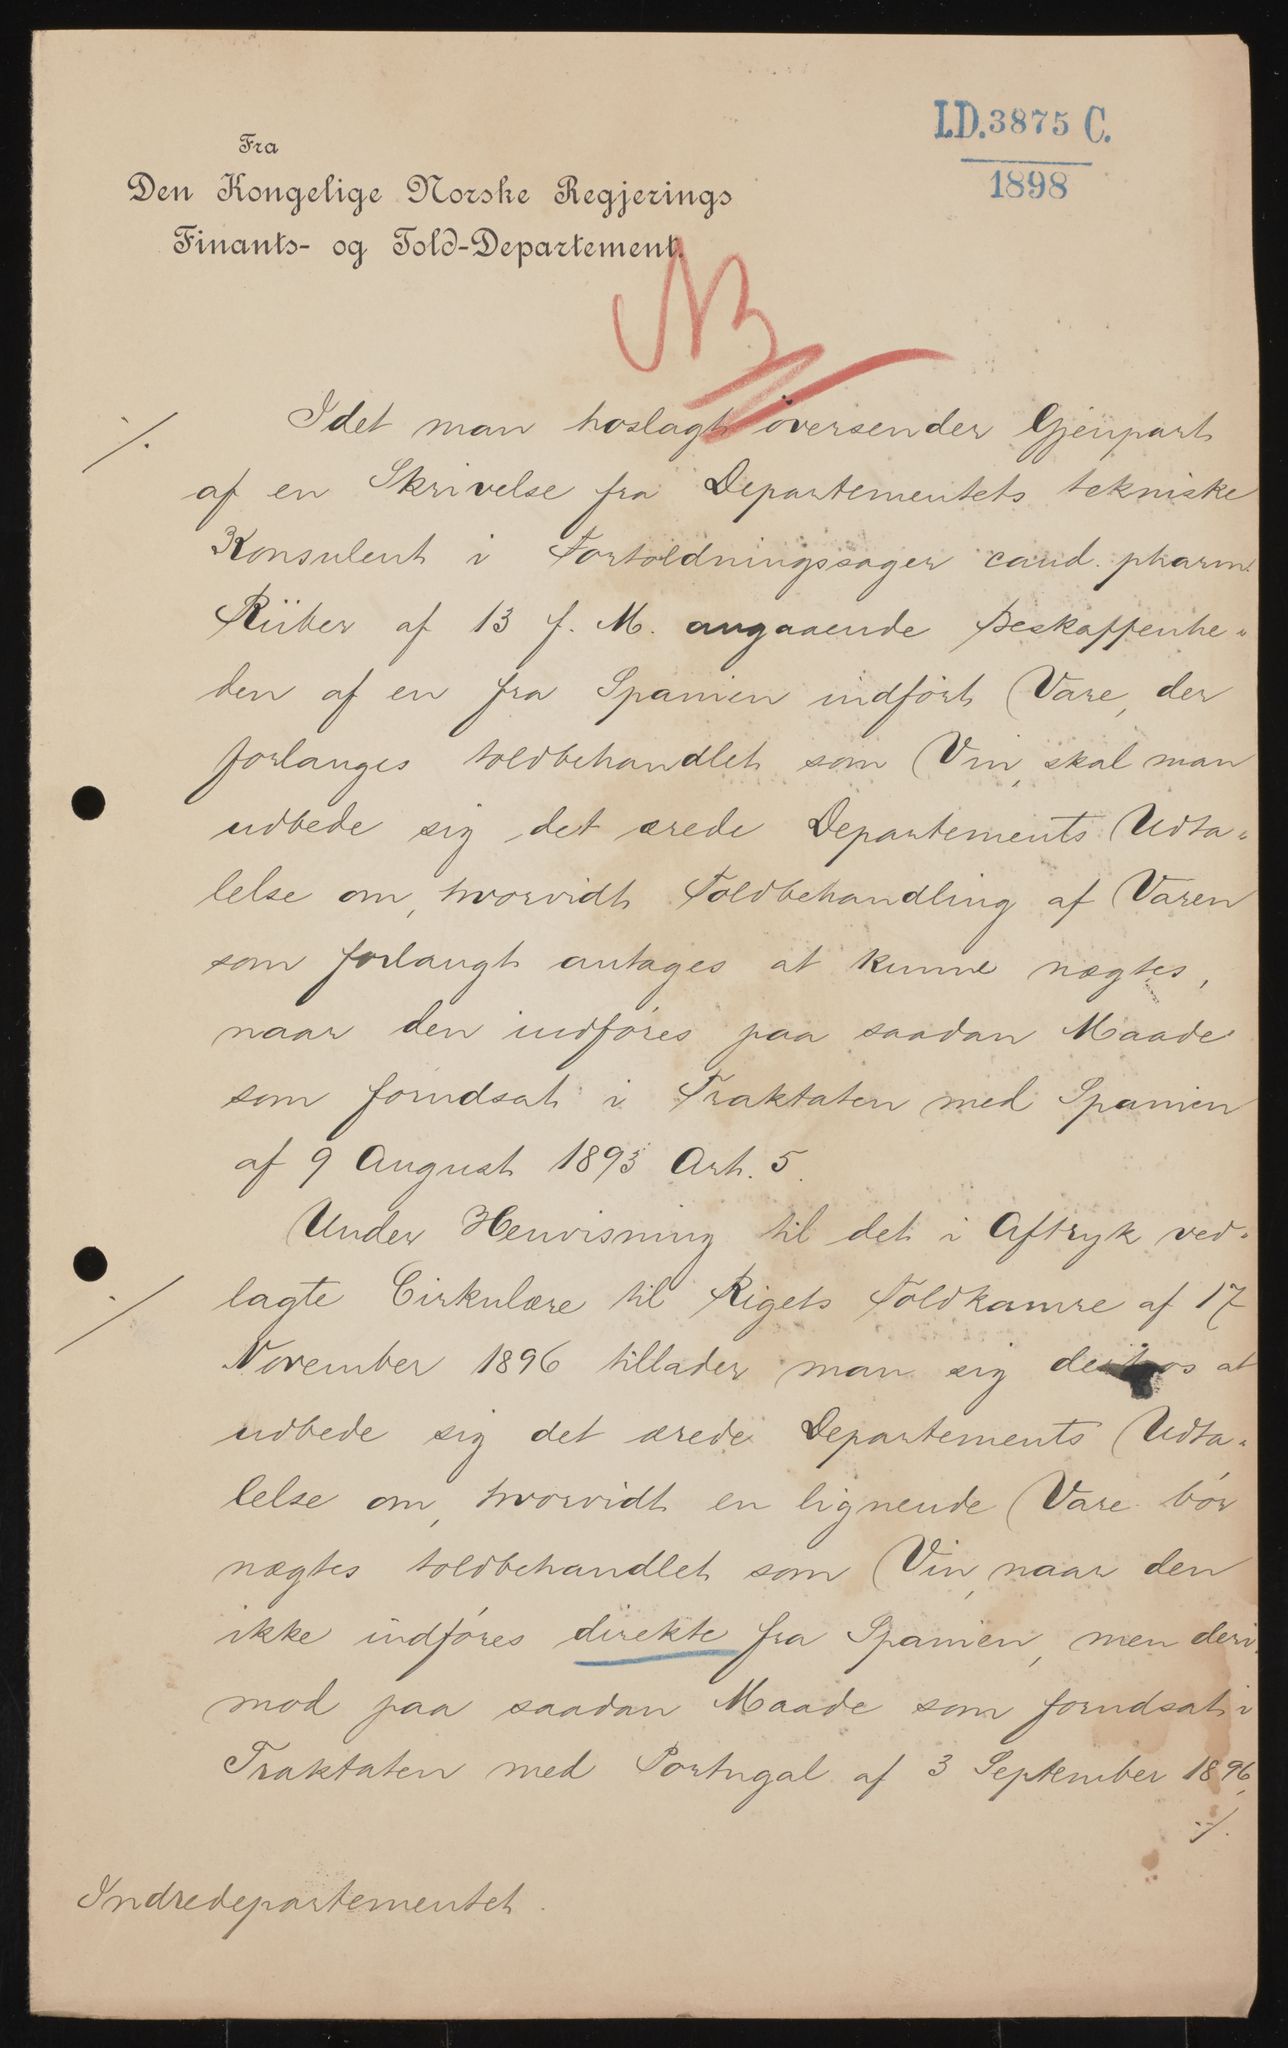 I.D. 3875 C.
1898
Fra
Den Kongelige Norske Regjerings
Finants- og Told-Departement.
NB
Idet man hoslagt oversender Gjenpart
af en Skrivelse fra Departementets tekniske
Konsulent i Fortoldningssager cand. pharm.
Riiber af 13 f. M. angaaende Beskaffenhe-
den af en fra Spanien indført Vare, der
forlanges toldbehandlet som Vin, skal man
udbede sig det ærede Departements Udta-
lelse om, hvorvidt Toldbehandling af Varen
som forlangt antages at kunne nægtes,
naar den indføres paa saadan Maade
som forudsat i Traktaten med Spanien
af 9 August 1893 Art. 5.
Under Henvisning til det i Aftryk ved-
lagte Cirkulære til Rigets Toldkamre af 17
November 1896 tillader man sig derhos at
udbede sig det ærede Departements Udta-
lelse om, hvorvidt en lignende Vare bør
nægtes toldbehandlet som Vin, naar den
ikke indføres direkte fra Spanien, men deri-
mod paa saadan Maade som forudsat i
Traktaten med Portugal af 3 September 1896,
./.
Indredepartementet.